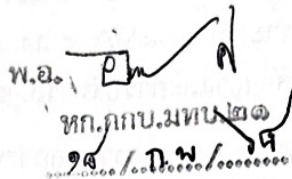 พ.อ.
หก.กกบ.มทบ.๒๑
๑๘ / ก.พ / ๖๘